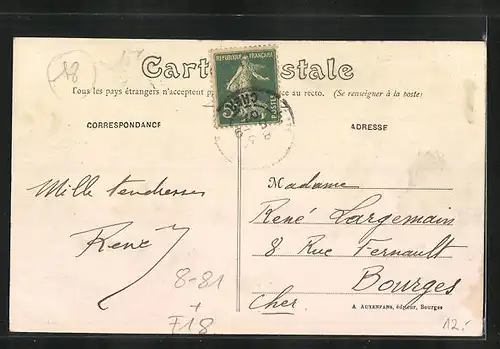 18
Carte Postale
Tous les pays étrangers n'acceptent p ce au recto. (Se renseigner à la poste)
REPUBLIQUE FRANÇAISE
POSTES
CORRESPONDANCE
ADRESSE
Madame
Mille tendresses
René Largemain
René
8 Rue Fernault
8-81
Bourges
+
Cher
A. AUXENFANS, éditeur, Bourges
F18
12.-